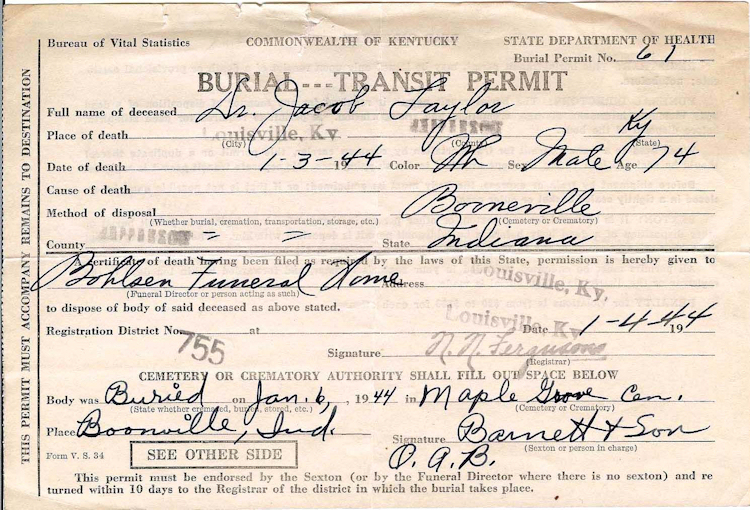 Bureau of Vital Statistics COMMONWEALTH OF KENTUCKY STATE DEPARTMENT OF HEALTH
Burial Permit No. 61
BURIAL---TRANSIT PERMIT
Full name of deceased Dr. Jacob Taylor
Place of death Louisville, Ky. Ky
(City) (County) (State)
Date of death 1-3-44 19 Color Wh Sex Male Age 74
Cause of death
Method of disposal Borneville
(Whether burial, cremation, transportation, storage, etc.) (Cemetery or Crematory)
County " " State Indiana
A certificate of death having been filed as required by the laws of this State, permission is hereby given to
Bohlsen Funeral Home Address Louisville, Ky.
(Funeral Director or person acting as such)
to dispose of body of said deceased as above stated.
Louisville, Ky
Registration District No. 755 at Date 1-4-44 19
Signature N. N. Fergusons
(Registrar)
CEMETERY OR CREMATORY AUTHORITY SHALL FILL OUT SPACE BELOW
Body was Buried on Jan. 6, 1944 in Maple Grove Cem.
(State whether cremated, buried, stored, etc.) (Cemetery or Crematory)
Place Boonville, Ind. Signature Barnett & Son
(Sexton or person in charge)
Form V. S. 34 SEE OTHER SIDE O.A.B.
This permit must be endorsed by the Sexton (or by the Funeral Director where there is no sexton) and re
turned within 10 days to the Registrar of the district in which the burial takes place.
THIS PERMIT MUST ACCOMPANY REMAINS TO DESTINATION